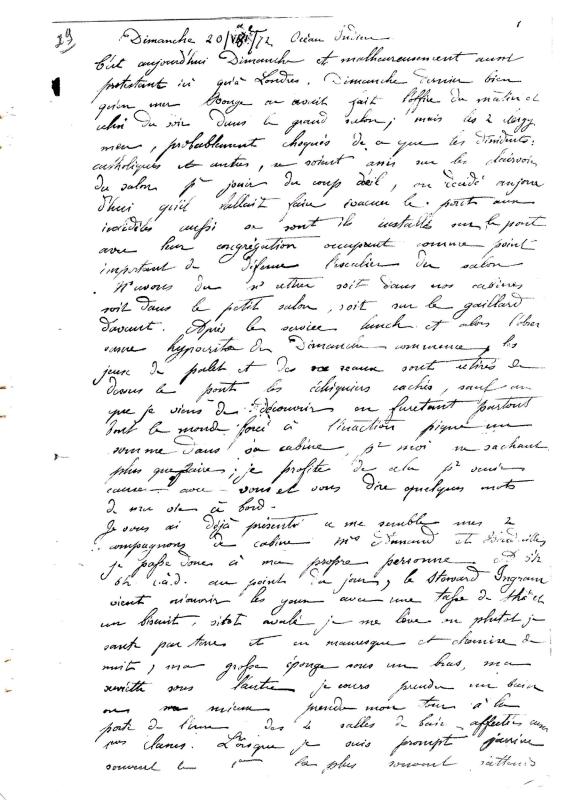 29
Dimanche 20/ /72 Océan Indien
C'est aujourd'hui Dimanche et malheureusement aussi
protestant ici qu'à Londres. Dimanche dernier bien
qu'en mer Rouge on avait fait l'office du matin et
celui du soir dans le grand salon; mais les 2 clergy
men, probablement choqués de ce que les dissidents:
catholiques et autres, se soient assis sur les
du salon pr jouir du coup d'œil, on décidé aujour
d'hui qu'il fallait faire évacuer le pont aux
incrédules aussi se sont ils installés sur le pont
avec leur congrégation occupant comme point
important de défense l'escalier du salon
soit dans nos cabines
soit dans le petit salon, soit sur le gaillard
d'avant. Après le service lunch et alors l'obser
vance hypocrite du Dimanche commence, les
jeux de palet et des anneaux sont retirés de
dessus le pont les échiquiers cachés, sauf un
que je viens de découvrir en furetant partout
tout le monde forcé à l'inaction pique un
somme dans sa cabine, pr moi ne sachant
plus que faire; je profite de cela pr venir
causer avec vous et vous dire quelques mots
de ma vie à bord.
Je vous ai déjà présenté ce me semble mes 2
compagnons de cabine Mrs et
je passe donc à ma propre personne
6h c.à.d. au point du jour, le Steward Ingram
vient m'ouvrir les yeux avec une tasse de thé et
un biscuit, sitôt avalé je me lève ou plutôt je
saute par terre et en mauresque et chemise de
nuit, ma grosse éponge sous un bras, ma
serviette sous l'autre je cours prendre un bain
ou mieux prendre mon tour à la
porte de l'une des 2 salles de bain affectées aux
classes. Lorsque je suis prompt j'arrive
souvent le 1er le plus souvent j'attends